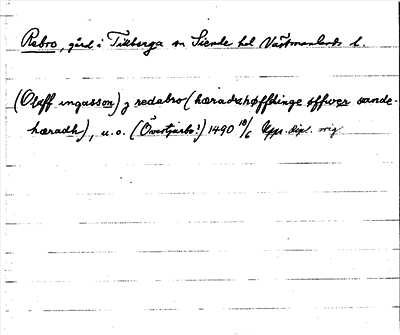 Rebro, gård i Tillberga sn Siende hd Västmanlands l.
(Olaff ingasson) j redabro (hæradzhøffdinge offwer ande-
hæradh), u.o. (Öwestjurbo!) 1490 18/6 Upps. dipl. orig.